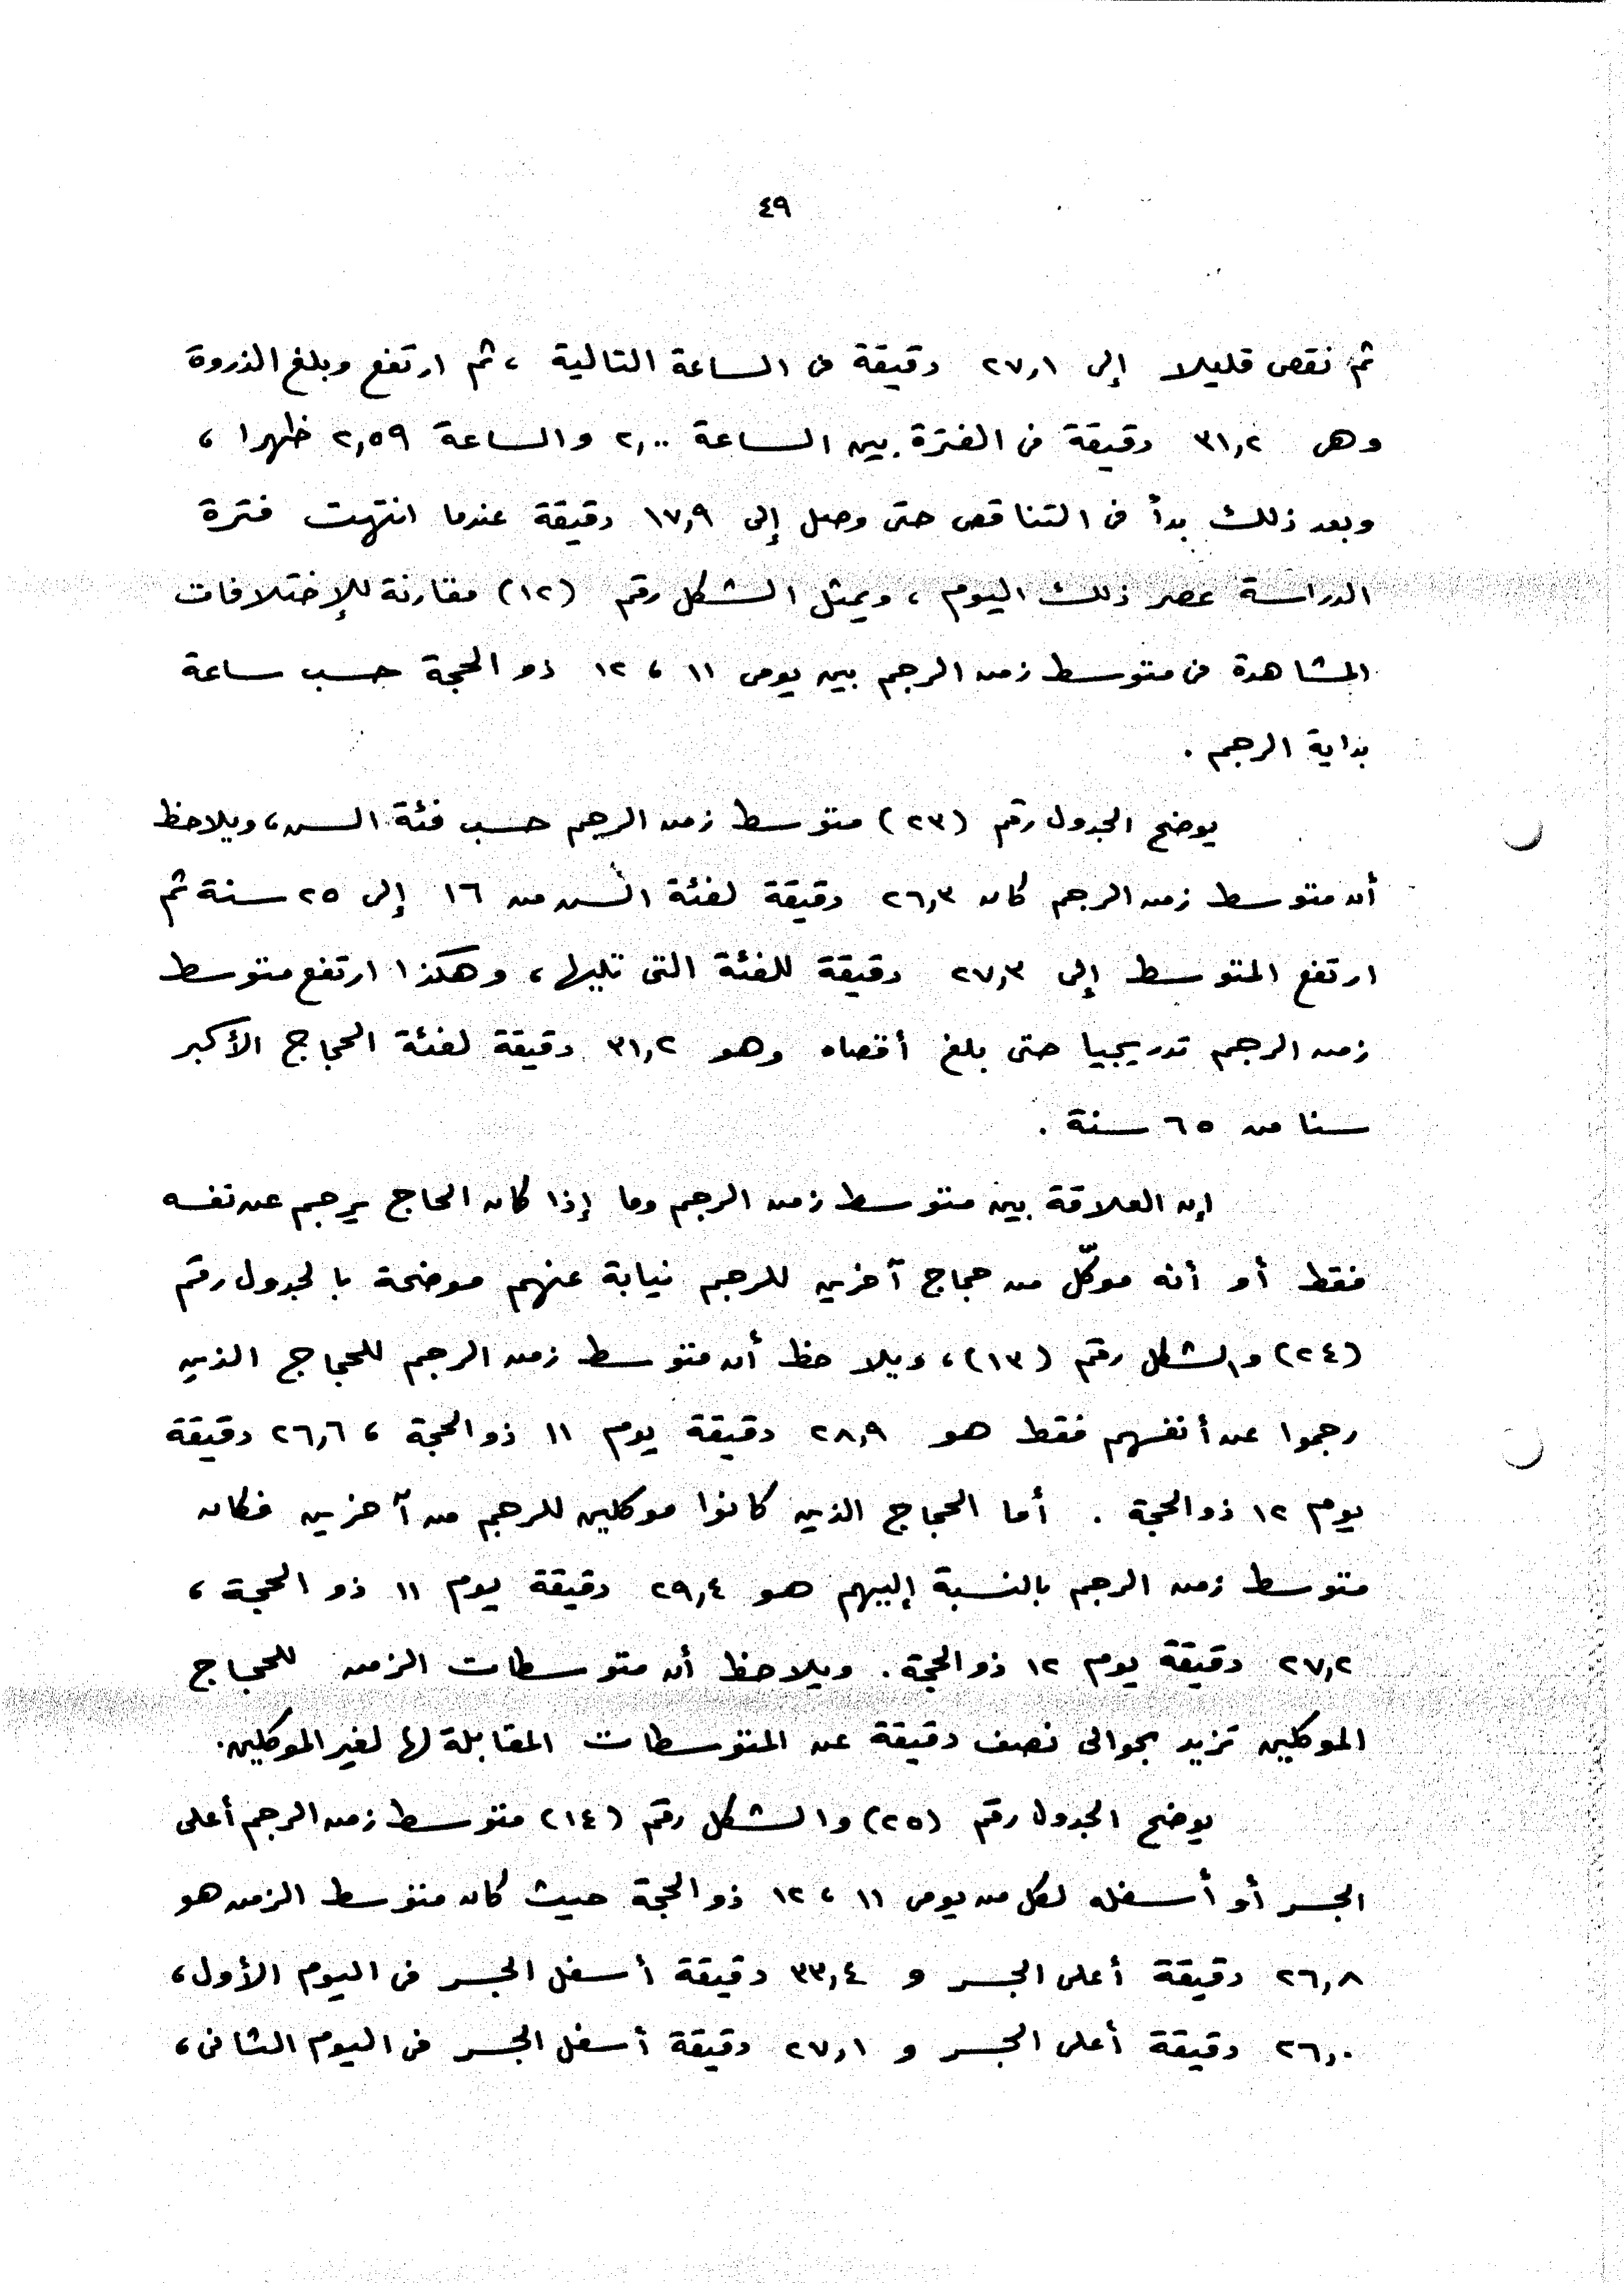 ٤٩
ثم نقص قليلا إلى ٢٧,١ دقيقة فى الساعة التالية ، ثم ارتفع وبلغ الذروة
وهى ٣١,٢ دقيقة فى الفترة بين الساعة ٢,٠٠ والساعة ٢,٥٩ ظهرا ،
وبعد ذلك بدأ فى التناقص حتى وصل إلى ١٧,٩ دقيقة عندما انتهت فترة
الدراسة عصر ذلك اليوم ، ويمثل الشكل رقم (١٢) مقارنة للإختلافات
المشاهدة فى متوسط زمن الرجم بين يومى ١١ ، ١٢ ذو الحجة حسب ساعة
بداية الرجم .
يوضح الجدول رقم (٢٣) متوسط زمن الرجم حسب فئة السن ، ويلاحظ
أن متوسط زمن الرجم كان ٢٦,٣ دقيقة لفئة السن من ١٦ إلى ٢٥ سنة ثم
ارتفع المتوسط إلى ٢٧,٣ دقيقة للفئة التى تليها ، وهكذا ارتفع متوسط
زمن الرجم تدريجيا حتى بلغ أقصاه وهو ٣١,٢ دقيقة لفئة الحجاج الأكبر
سنا من ٦٥ سنة .
إن العلاقة بين متوسط زمن الرجم وما إذا كان الحاج يرجم عن نفسه
فقط أو أنه موكّل من حجاج آخرين للرجم نيابة عنهم موضحة بالجدول رقم
(٢٤) والشكل رقم (١٣) ، ويلاحظ أن متوسط زمن الرجم للحجاج الذين
رجموا عن أنفسهم فقط هو ٢٨,٩ دقيقة يوم ١١ ذو الحجة ، ٢٦,٦ دقيقة
يوم ١٢ ذو الحجة . أما الحجاج الذين كانوا موكلين للرجم من آخرين فكان
متوسط زمن الرجم بالنسبة إليهم هو ٢٩,٤ دقيقة يوم ١١ ذو الحجة ،
٢٧,٢ دقيقة يوم ١٢ ذو الحجة . ويلاحظ أن متوسطات الزمن للحجاج
الموكلين تزيد بحوالى نصف دقيقة عن المتوسطات المقابلة لها لغير الموكلين .
يوضح الجدول رقم (٢٥) والشكل رقم (١٤) متوسط زمن الرجم أعلى
الجسر أو أسفله لكل من يومى ١١ ، ١٢ ذو الحجة حيث كان متوسط الزمن هو
٢٦,٨ دقيقة أعلى الجسر و ٣٣,٤ دقيقة أسفل الجسر فى اليوم الأول ،
٢٦,٠ دقيقة أعلى الجسر و ٢٧,١ دقيقة أسفل الجسر فى اليوم الثانى ،